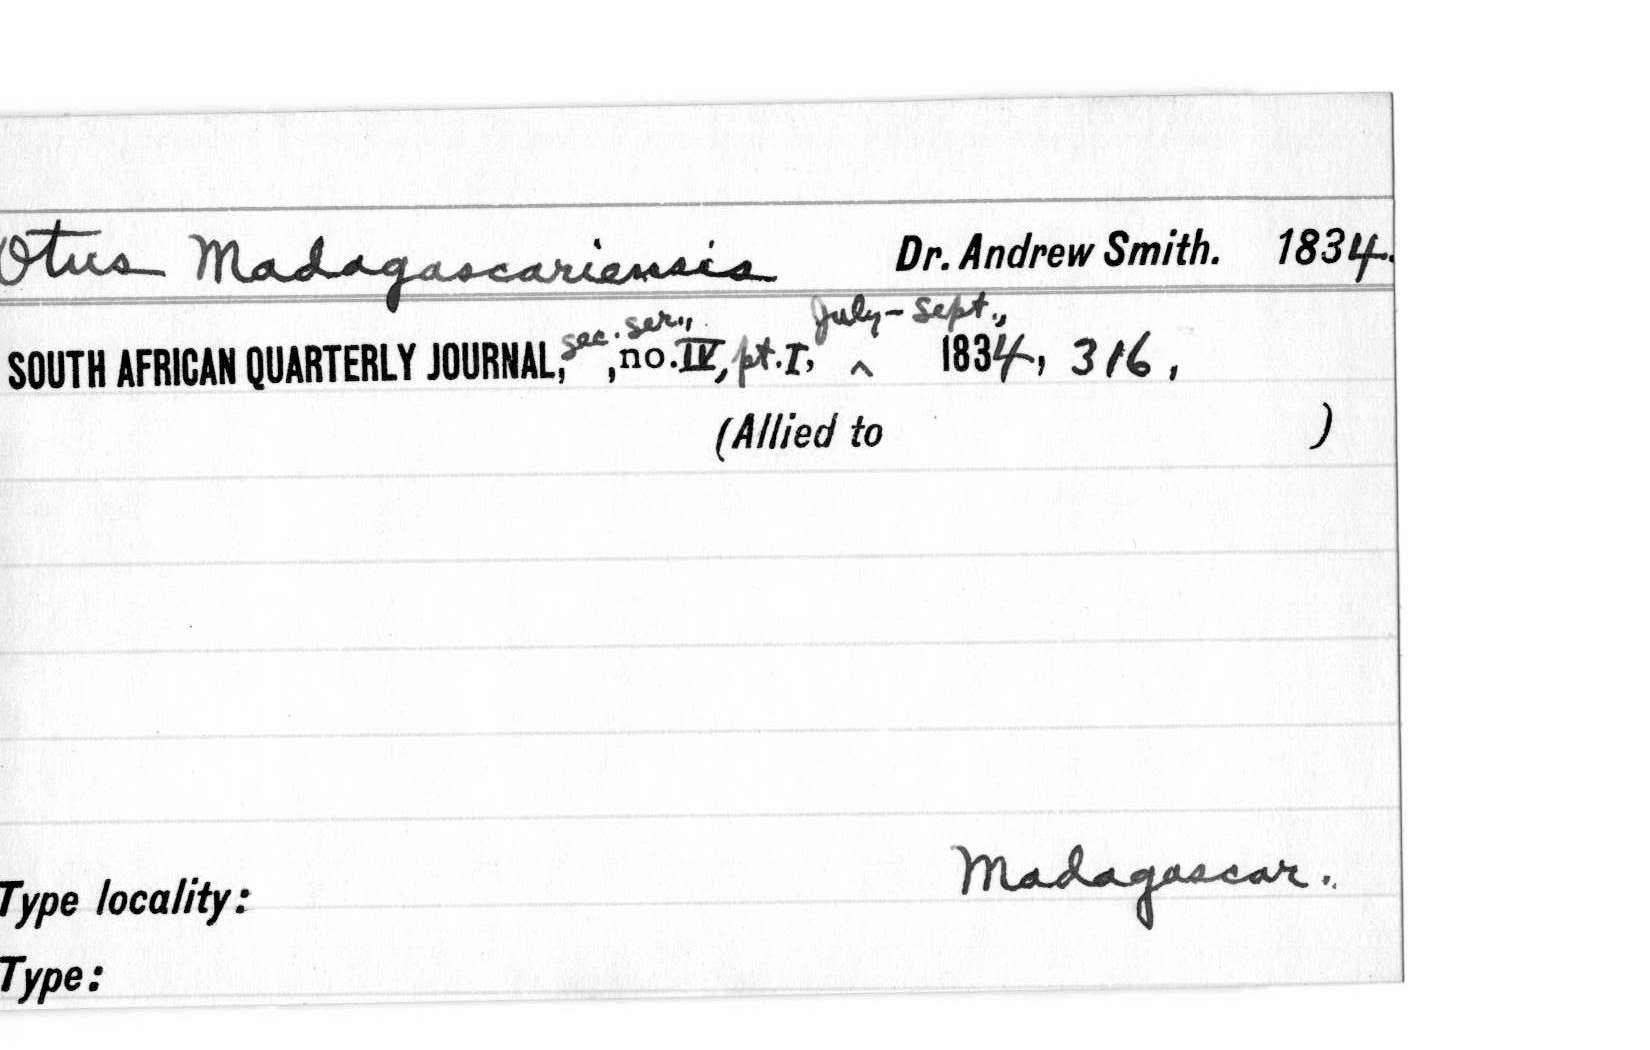 Otus Madagascariensis Dr. Andrew Smith. 1834.
SOUTH AFRICAN QUARTERLY JOURNAL, sec. ser., , no. IV, pt. I, ^ July-Sept., 1834, 316,
(Allied to )
Type locality: Madagascar.
Type: